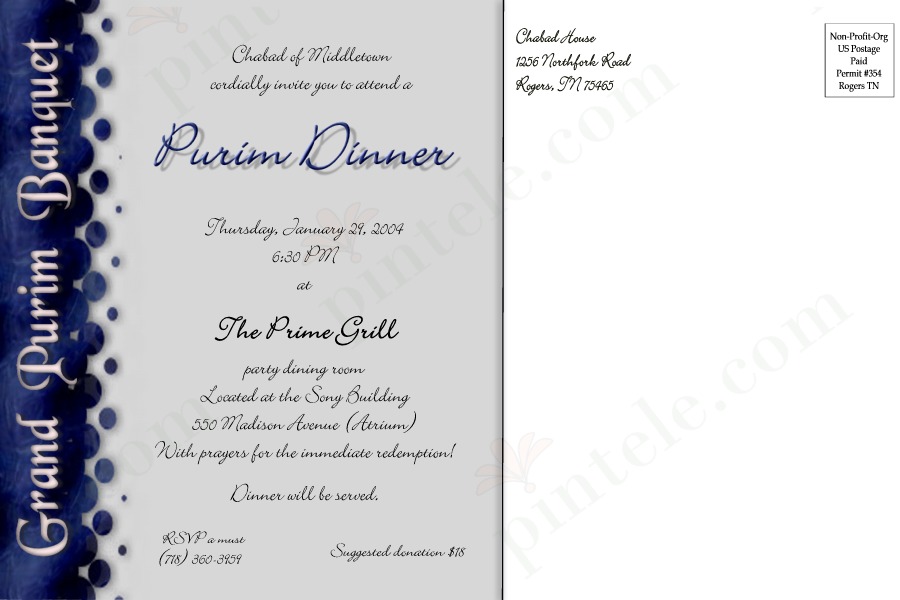 Grand Purim Banquet
Chabad of Middletown
cordially invite you to attend a
Purim Dinner
Thursday, January 29, 2004
6:30 PM
at
The Prime Grill
party dining room
Located at the Sony Building
550 Madison Avenue (Atrium)
With prayers for the immediate redemption!
Dinner will be served.
RSVP a must
(718) 360-3959
Suggested donation $18
Chabad House
1256 Northfork Road
Rogers, TN 75465
Non-Profit-Org
US Postage
Paid
Permit #354
Rogers TN
pintele.com
pintele.com
pintele.com